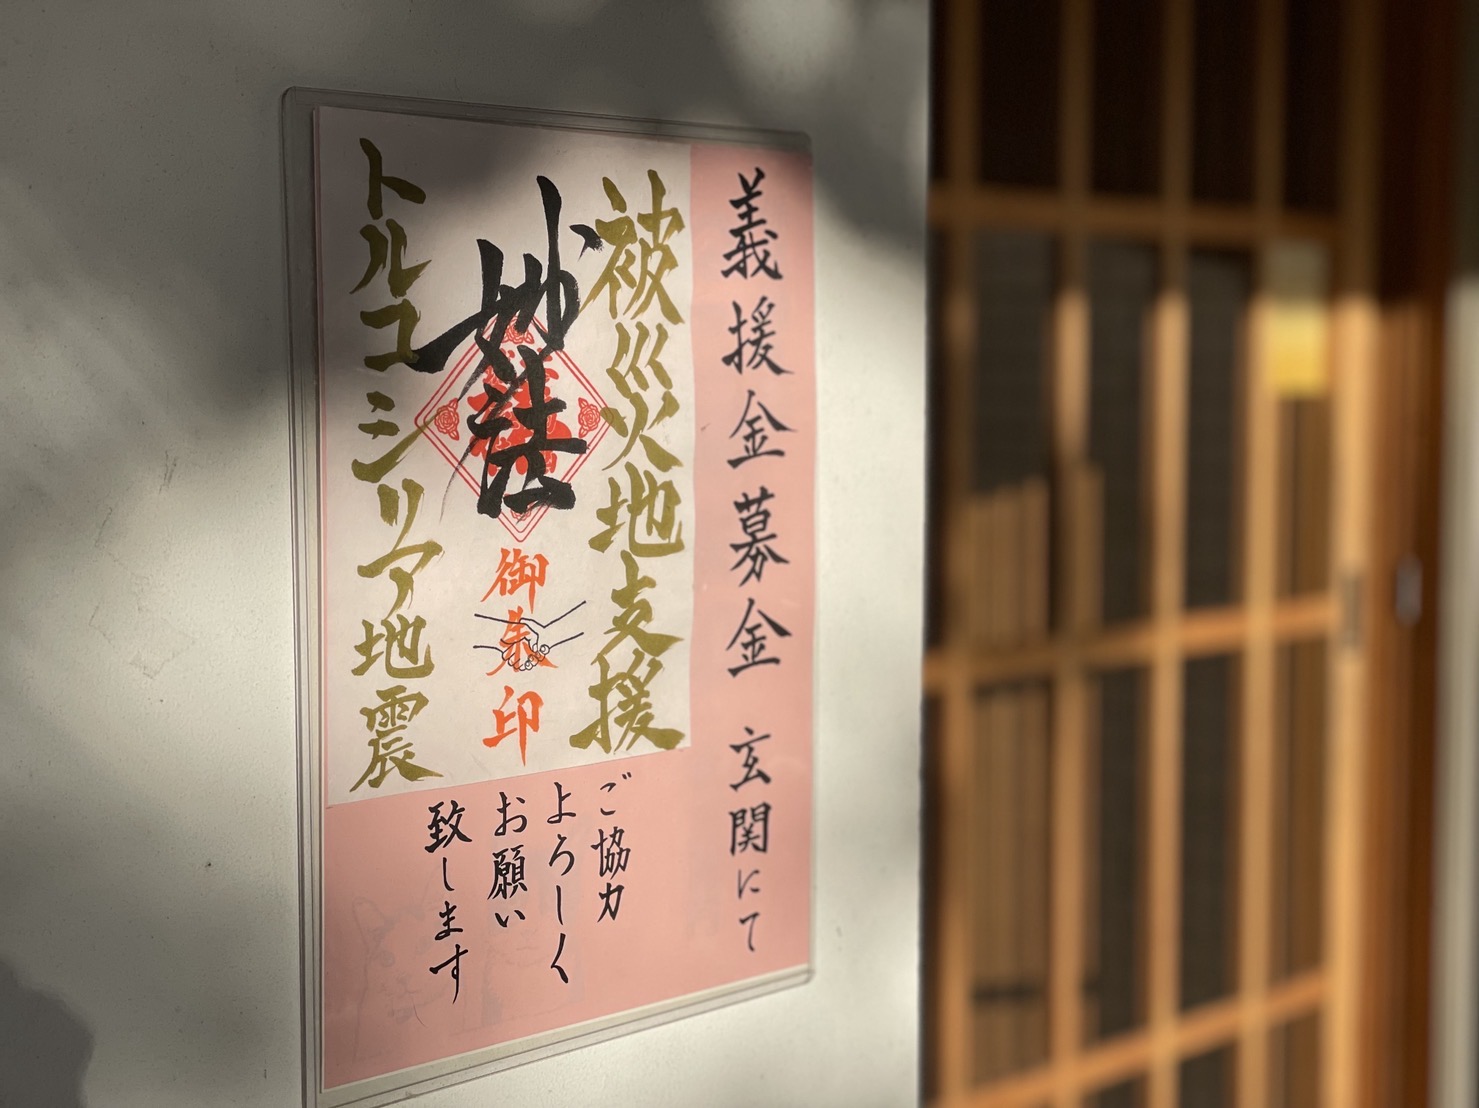 義援金募金 玄関にて
被災地支援
妙法
御朱印
トルコシリア地震
ご協力
よろしく
お願い
致します